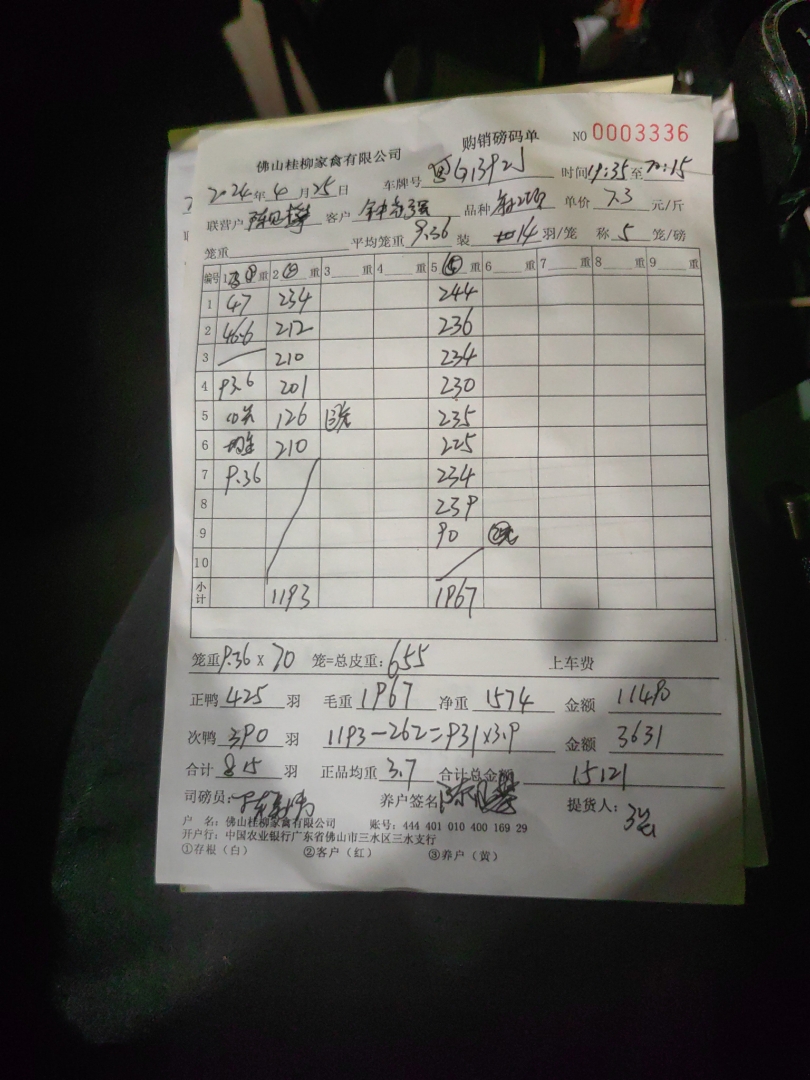 佛山桂柳家禽有限公司 购销磅码单 NO 0003336
2024年4月25日 车牌号 时间19:35至20:15
联营户 客户 品种 单价 7.3 元/斤
笼重 平均笼重 9.36 装 14 羽/笼 称 5 笼/磅
编号 1 重 2 重 3 重 4 重 5 重 6 重 7 重 8 重 9 重
1 47 234 244
2 46.6 212 236
3 210 234
4 93.6 201 230
5 126 235
6 210 225
7 9.36 234
8 239
9 90
10
小计 1193 1967
笼重9.36 X 70 笼=总皮重:655 上车费
正鸭 425 羽 毛重 1967 净重 1574 金额 11490
次鸭 390 羽 1193-262=931×3.9 金额 3631
合计 815 羽 正品均重 3.7 合计总金额 15121
司磅员: 养户签名 提货人:
户 名:佛山桂柳家禽有限公司 账号:444 401 010 400 169 29
开户行:中国农业银行广东省佛山市三水区三水支行
①存根(白) ②客户(红) ③养户(黄)